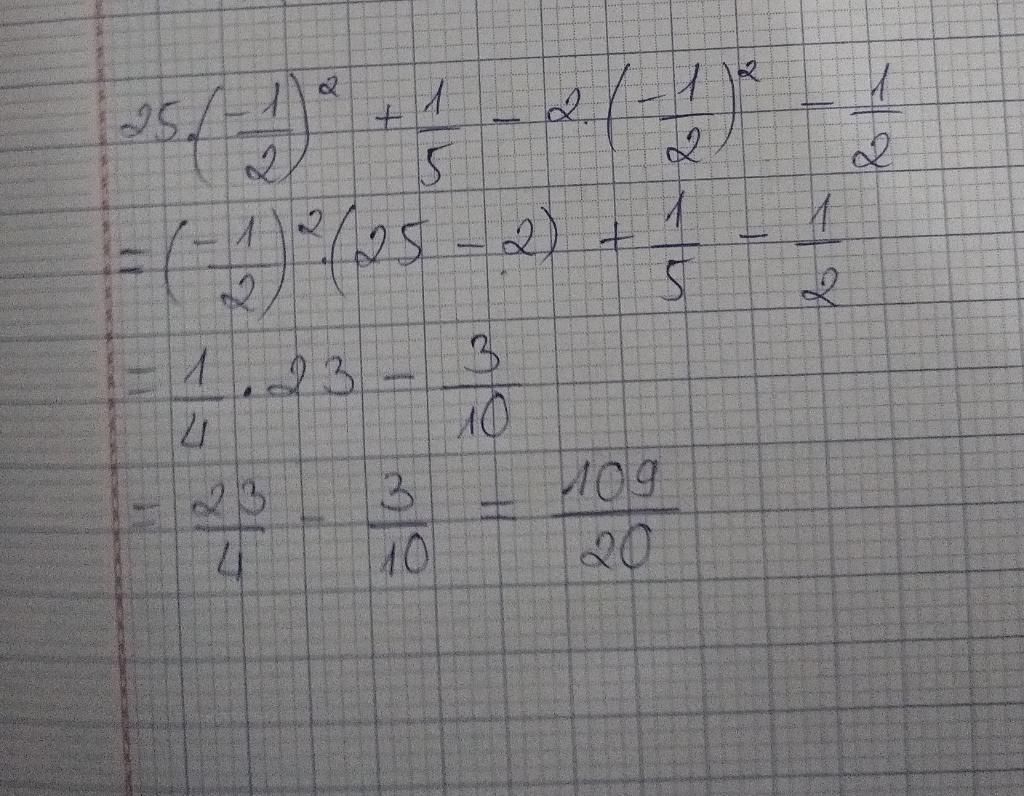 25.(-1/2)² + 1/5 - 2.(-1/2)² - 1/2
= (-1/2)².(25 - 2) + 1/5 - 1/2
= 1/4 . 23 - 3/10
= 23/4 - 3/10 = 109/20